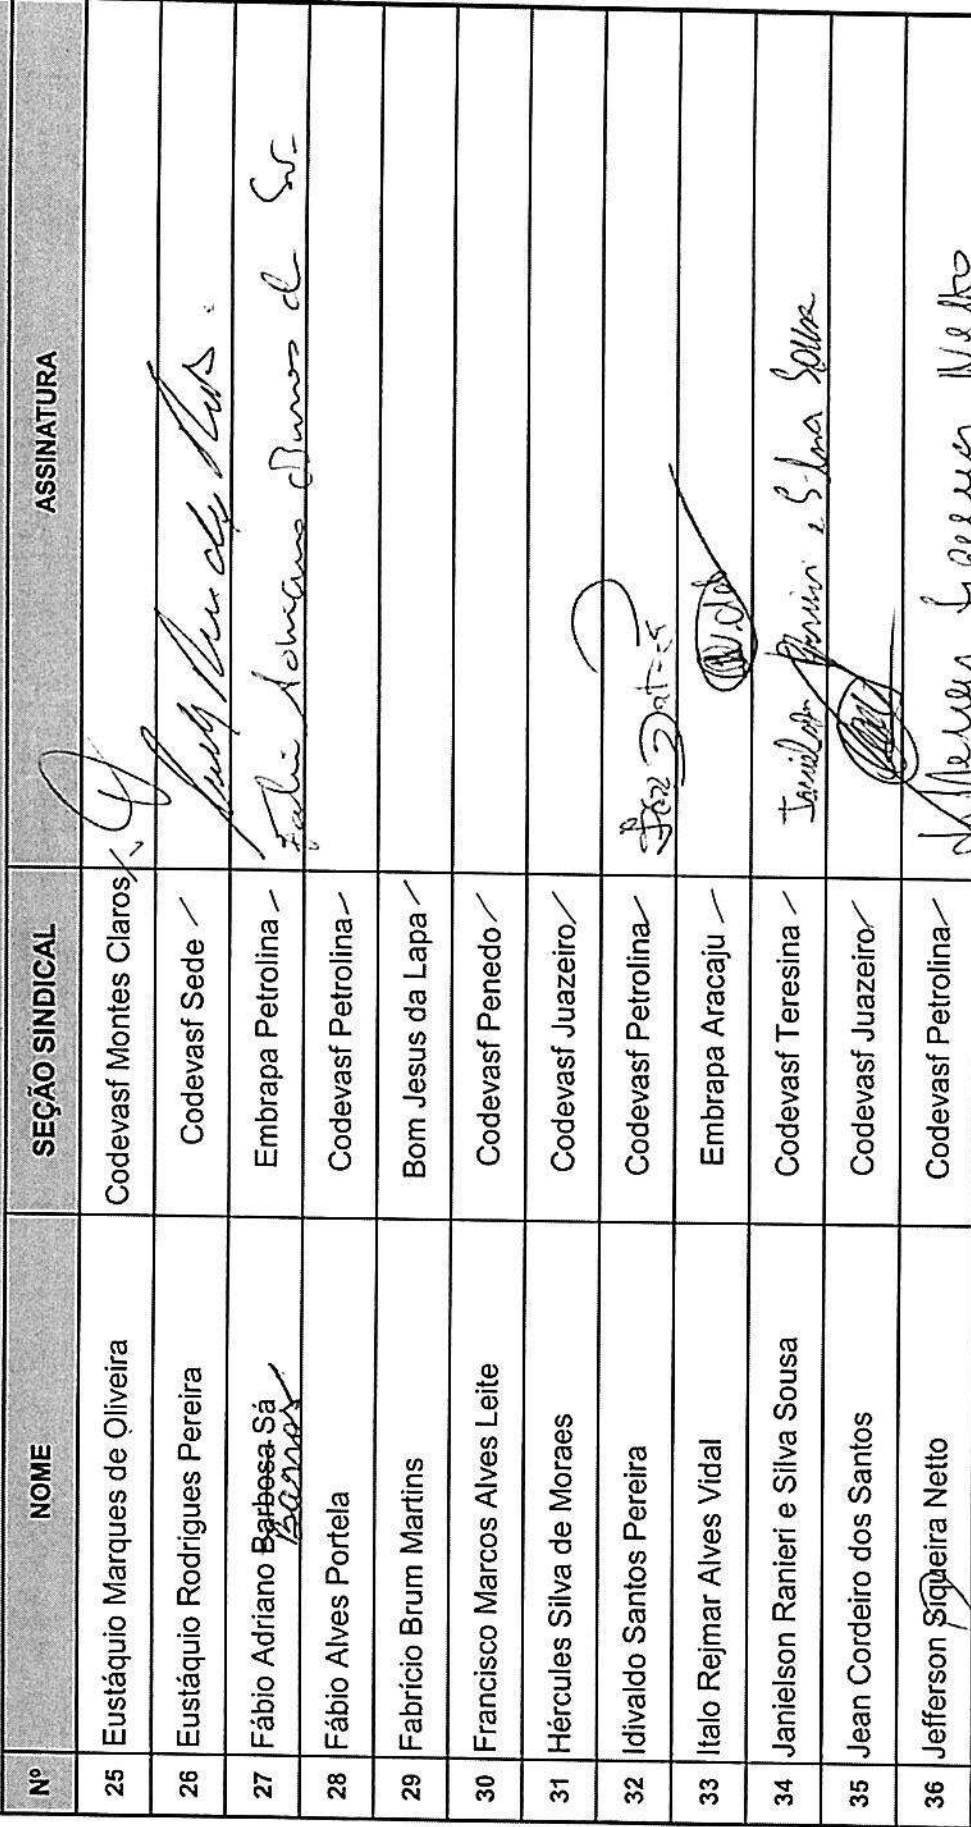 Nº NOME SEÇÃO SINDICAL ASSINATURA
25 Eustáquio Marques de Oliveira Codevasf Montes Claros
26 Eustáquio Rodrigues Pereira Codevasf Sede
27 Fábio Adriano Barbosa Sá Embrapa Petrolina
Barros
28 Fábio Alves Portela Codevasf Petrolina
29 Fabrício Brum Martins Bom Jesus da Lapa
30 Francisco Marcos Alves Leite Codevasf Penedo
31 Hércules Silva de Moraes Codevasf Juazeiro
32 Idivaldo Santos Pereira Codevasf Petrolina
33 Italo Rejmar Alves Vidal Embrapa Aracaju
34 Janielson Ranieri e Silva Sousa Codevasf Teresina Janielson Ranieri e Silva Sousa
35 Jean Cordeiro dos Santos Codevasf Juazeiro
36 Jefferson Siqueira Netto Codevasf Petrolina